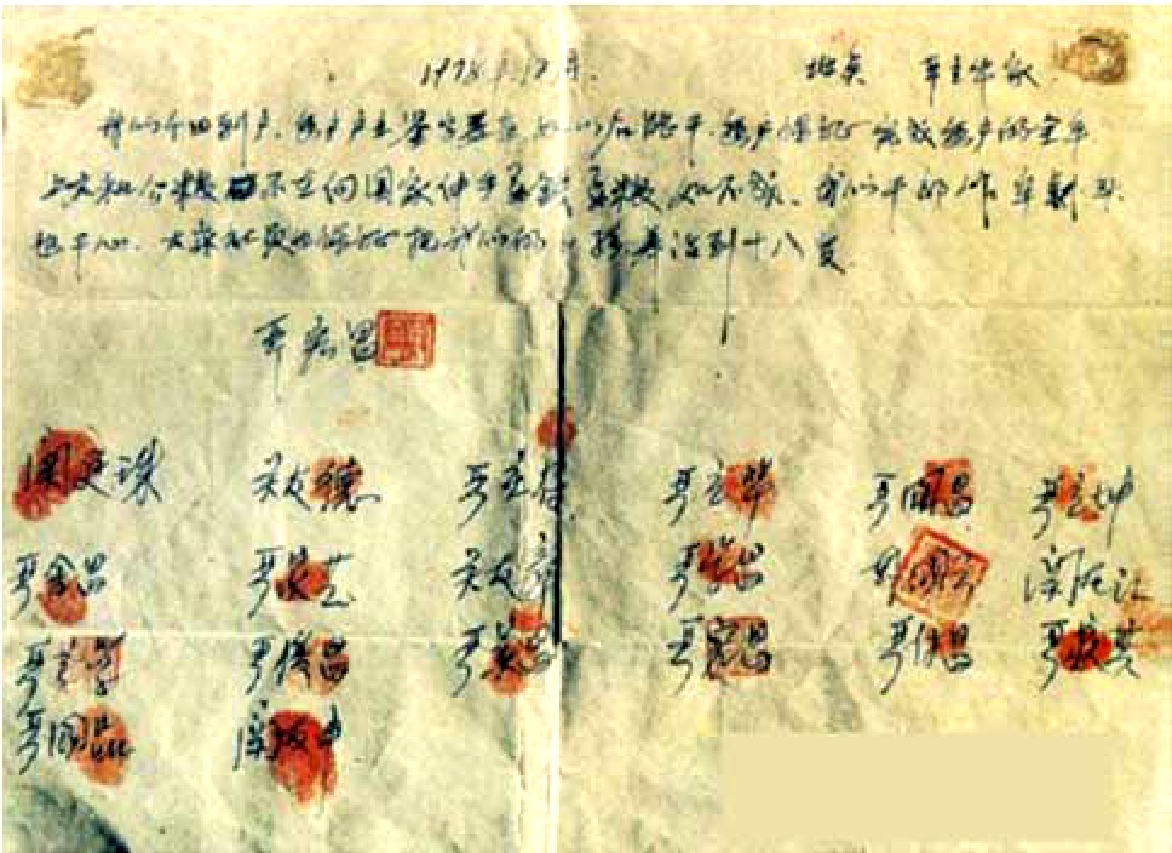 1978年12月 地点 严立华家
我们分田到户,每户户主签字盖章,如以后能干,每户保证完成每户的全年
上交和公粮 不在向国家伸手要钱要粮,如不成,我们干部作牢刹头
也干心,大家社员也保证把我们的小孩养活到十八岁
严宏昌
关廷珠 关友德 严立符 严立华 严国昌 严立坤
严金昌 严家芝 关友章 严学昌 韩国云 关友江
严立学 严俊昌 严美昌 严宏昌 严付昌 严家其
严国品 关友申